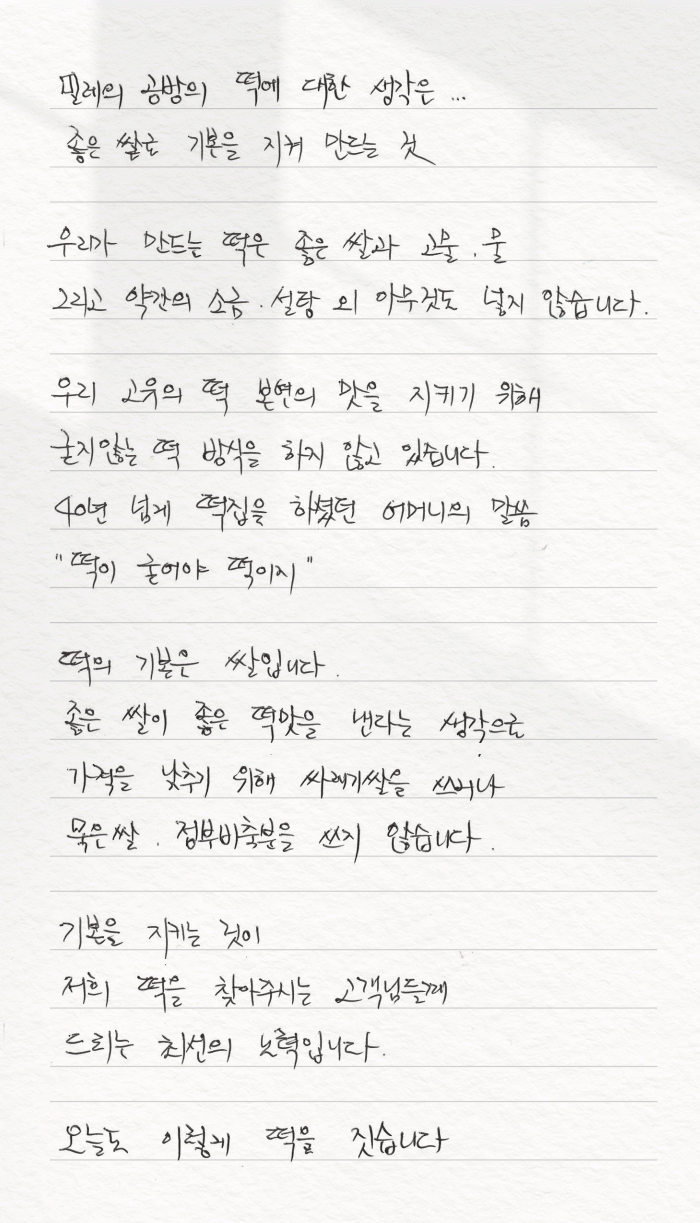 필레의 공방의 떡에 대한 생각은 ...
좋은 쌀로 기본을 지켜 만드는 것
우리가 만드는 떡은 좋은 쌀과 고물 . 물
그리고 약간의 소금 . 설탕 외 아무것도 넣지 않습니다.
우리 고유의 떡 본연의 맛을 지키기 위해
굳지않는 떡 방식을 하지 않고 있습니다.
40년 넘게 떡집을 하셨던 어머니의 말씀
"떡이 굳어야 떡이지"
떡의 기본은 쌀입니다.
좋은 쌀이 좋은 떡맛을 낸다는 생각으로
가격을 낮추기 위해 싸래기쌀을 쓰거나
묵은쌀 . 정부비축분을 쓰지 않습니다.
기본을 지키는 것이
저희 떡을 찾아주시는 고객님들께
드리는 최선의 노력입니다.
오늘도 이렇게 떡을 짓습니다